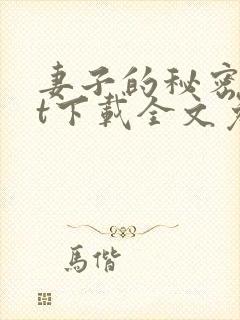 妻子的秘密
t下载全文
馬偕